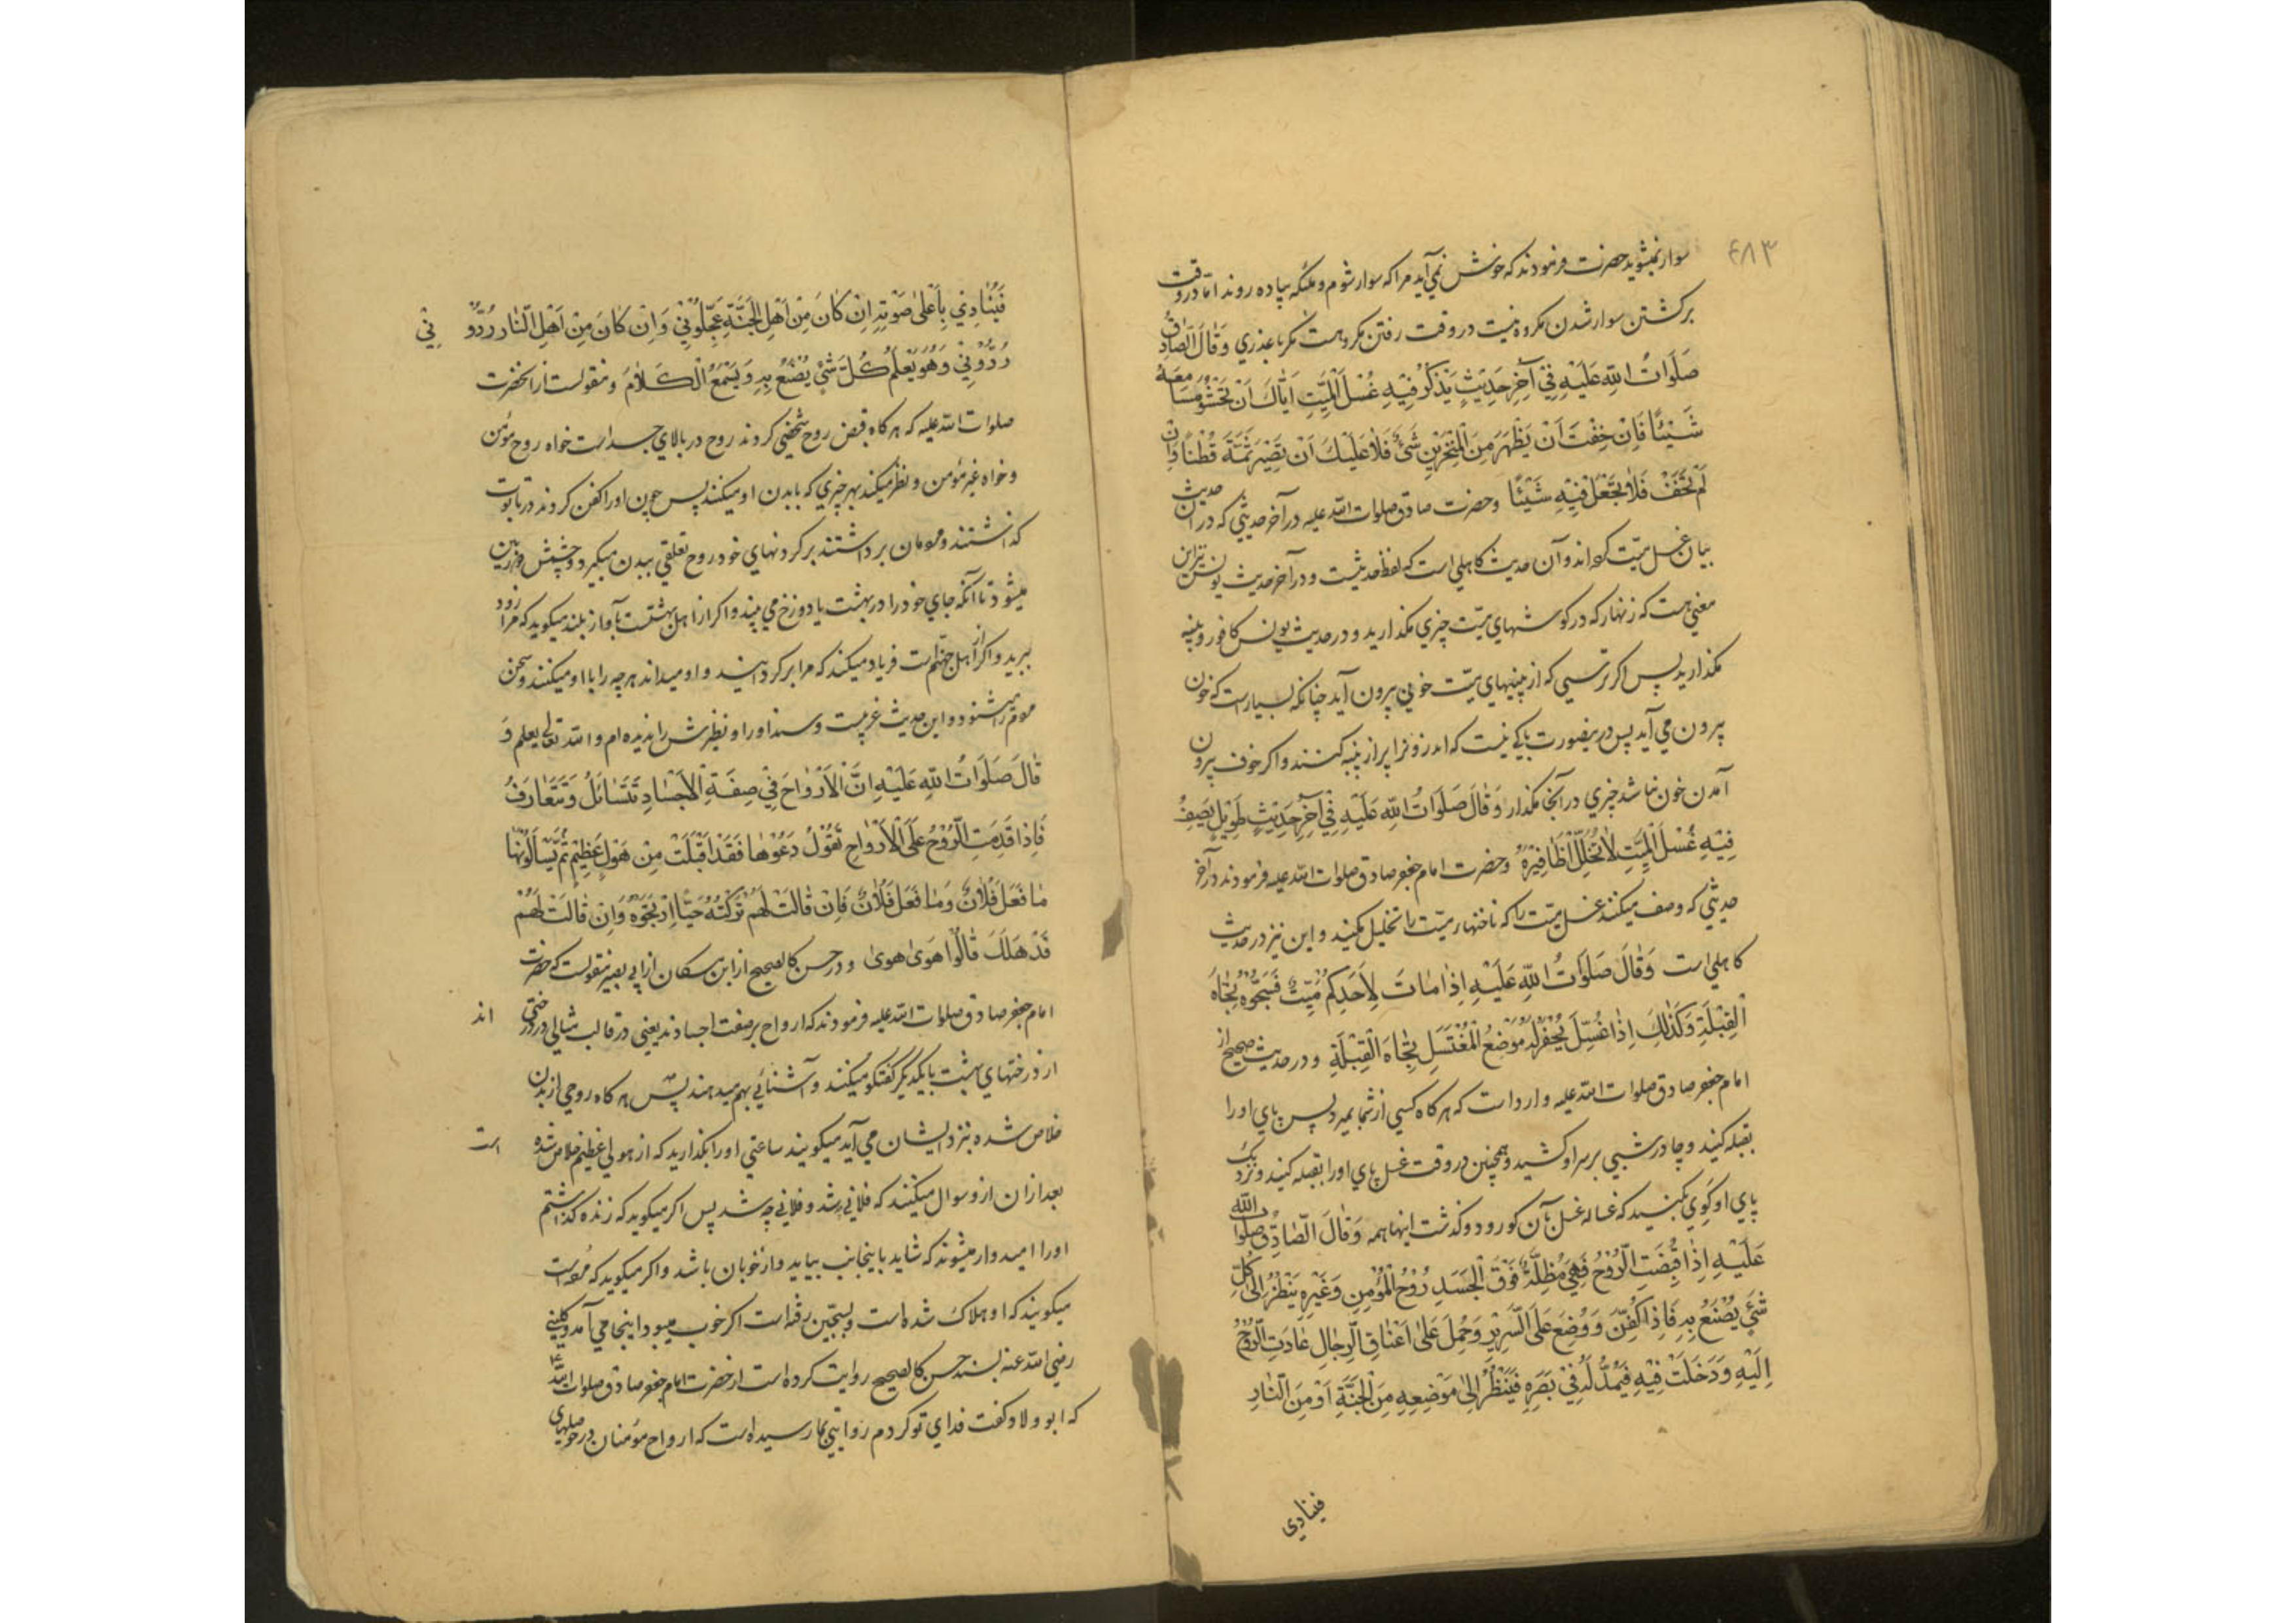 ۴۸۳
سوار نمیشوید حضرت فرمودند که خوش نمی‌آید مرا که سوار شوم و ملئکه پیاده روند اما در وقت
برکشتن سوار شدن مکروه نیست در وقت رفتن مکروهست مکر با عذری وَقٰالَ الصّٰادِقُ
صَلَوَاتُ اللّٰهِ عَلَيْهِ فِيْ آخِرِ حَدِيْثٍ يَذْكُرُ فِيْهِ غُسْلَ الْمَيِّتِ اِيّٰاكَ اَنْ تَحْشُوَ مَسٰامِعَهُ
شَيْئًا فَاِنْ خِفْتَ اَنْ يَظْهَرَ مِنَ الْمَنْخِرَيْنِ شَئٌ فَلٰا عَلَيْكَ اَنْ تُصَيِّرَ ثَمَّةَ قُطْنًا وَاِنْ
لَمْ تَخَفْ فَلٰا تَجْعَلْ فِيْهِ شَيْئًا وحضرت صادق صلوات الله علیه در آخر حدیثی که در ان حدیث
بیان غسل میّت کرده‌اند و آن حدیث کاهلی است که لفظ حدیثست و در آخر حدیث یونس نیز این
معنی هست که زنهار که در کوشهای میّت چیزی مکذارید و در حدیث یونس کافور و پنبه
مکذارید پس اکر ترسی که از بینیهای میّت خونی پیرون آید چنانکه بسیار است که خون
پیرون می‌آید پس درینصورت باکی نیست که اندرون را پر از پنبه کنند و اکر خوف پیرون
آمدن خون نباشد چیزی در آنجا مکذار وَقٰالَ صَلَوَاتُ اللّٰهِ عَلَيْهِ فِيْ آخِرِ حَدِيْثٍ طَوِيْلٍ يَصِفُ
فِيْهِ غُسْلَ الْمَيِّتِ لٰا تُخَلِّلْ اَظَافِيْرَهُ وحضرت امام جعفر صادق صلوات الله علیه فرمودند در آخر
حدیثی که وصف میکنند غسل میّت را که ناخنهار میّت را تخلیل مکنید و این نیز در حدیث
کاهلی است وَقٰالَ صَلَوَاتُ اللّٰهِ عَلَيْهِ اِذٰا مٰاتَ لِاَحَدِكُمْ مَيِّتٌ فَسَجُّوْهُ تِجٰاهَ
الْقِبْلَةِ وَكَذٰلِكَ اِذٰا غُسِّلَ يُحْفَرُ لَهُ مَوْضِعُ الْمُغْتَسَلِ تِجٰاهَ الْقِبْلَةِ و در حدیث صحیح از
امام جعفر صادق صلوات الله علیه وارد است که هر کاه کسی از شما بمیرد پس پای او را
بقبله کنید و چادر شبی بر سر او کشید و همچنین در وقت غسل پای او را بقبله کنید و نزدیک
پای او کَوی بکنید که غساله غسل بآن کو رود و کذشت اینها همه وَقٰالَ الصّٰادِقُ صلوات الله
عَلَيْهِ اِذٰا قُبِضَتِ الرُّوْحُ فَهِيَ مُظِلَّةٌ فَوْقَ الْجَسَدِ رُوْحُ الْمُؤْمِنِ وَغَيْرِهِ يَنْظُرُ اِلٰى كُلِّ
شَئٍ يُصْنَعُ بِهِ فَاِذٰا كُفِّنَ وَوُضِعَ عَلَى السَّرِيْرِ وَحُمِلَ عَلٰى اَعْنٰاقِ الرِّجٰالِ عٰادَتِ الرُّوْحُ
اِلَيْهِ وَدَخَلَتْ فِيْهِ فَيُمَدُّ لَهُ فِيْ بَصَرِهِ فَيَنْظُرُ اِلٰى مَوْضِعِهِ مِنَ الْجَنَّةِ اَوْ مِنَ النّٰارِ
فینادی
فَيُنٰادِيْ بِاَعْلٰى صَوْتِهِ اِنْ كٰانَ مِنْ اَهْلِ الْجَنَّةِ عَجِّلُوْنِيْ وَاِنْ كٰانَ مِنْ اَهْلِ النّٰارِ رُدُّوْ نِيْ
رُدُّوْنِيْ وَهُوَ يَعْلَمُ كُلَّ شَئٍ يُصْنَعُ بِهِ وَيَسْمَعُ الْكَلٰامَ و منقولست از آنحضرت
صلوات الله علیه که هر کاه قبض روح شخصی کردند روح در بالای جسد است خواه روح مؤمن
و خواه غیر مؤمن و نظر میکند بهر چیزی که با بدن او میکنند پس چون او را کفن کردند و در تابوت
کذاشتند و مردمان برداشتند بر کردنهای خود روح تعلقی ببدن میکیرد و چشمش
میشود تا آنکه جای خود را در بهشت یا دوزخ می‌بیند و اکر از اهل بهشتست بآواز بلند میکوید که مرا زود
ببرید و اکر از اهل جهنّم است فریاد میکند که مرا برکردانید و او میداند هر چه را با او میکنند و سخن
مردم را میشنود و این حدیث غریبست و سند او را و نظیرش را ندیده‌ام والله تعالی یعلم وَ
قٰالَ صَلَوَاتُ اللّٰهِ عَلَيْهِ اِنَّ الْاَرْوٰاحَ فِيْ صِفَةِ الْاَجْسٰادِ تَتَسٰائَلُ وَتَتَعٰارَفُ
فَاِذٰا قَدِمَتِ الرُّوْحُ عَلَى الْاَرْوٰاحِ تَقُوْلُ دَعُوْهٰا فَقَدْ اَقْبَلَتْ مِنْ هَوْلٍ عَظِيْمٍ ثُمَّ يَسْاَلُوْنَهٰا
مٰا فَعَلَ فُلٰانٌ وَمٰا فَعَلَ فُلٰانٌ فَاِنْ قٰالَتْ لَهُمْ تَرَكْتُهُ حَيًّا اِرْتَجَوْهُ وَاِنْ قٰالَتْ لَهُمْ
قَدْ هَلَكَ قٰالُوْا هَوىٰ هَوىٰ و در حسن کالصحیح از ابن مسکان از ابی بصیر منقولست که حضرت
امام جعفر صادق صلوات الله علیه فرمودند که ارواح بر صفت اجسادند یعنی در قالب مثالی در درختی اند
از درختهای بهشت با یکدیکر کفتکو میکنند و آشنائی بهم میدهند پس هر کاه روحی از بدن
خلاص شده بنزد ایشان می‌آید میکویند ساعتی او را بکذارید که از هولی عظیم خلاص شده است
بعد از ان از و سوال میکنند که فلانی چه شد و فلانی چه شد پس اکر میکوید که زنده کذاشتم
او را امیدوار میشوند که شاید باینجانب بیاید و از خوبان باشد و اکر میکوید که مرده است
میکویند که او هلاک شده است و بسجّین رفته است اکر خوب میبود اینجا می‌آمد و کلینی
رضی الله عنه بسند حسن کالصحیح روایت کرده است از حضرت امام جعفر صادق صلوات الله علیه
که ابو ولاد کفت فدای تو کردم روایتی بما رسیده است که ارواح مؤمنان در حوصلهای